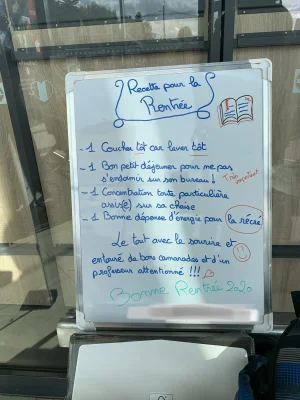 Recette pour la
Rentrée
- 1 Coucher tôt car lever tôt
- 1 Bon petit déjeuner pour ne pas
s'endormir sur son bureau !
Très important
- 1 Concentration toute particulière
assis(e) sur sa chaise
- 1 Bonne dépense d'énergie pour la récré
Le tout avec le sourire et
entouré de bons camarades et d'un
professeur attentionné !!!
Bonne Rentrée 2020